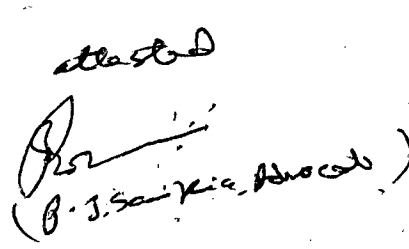 attested
(B. J. Saikia, Advocate)